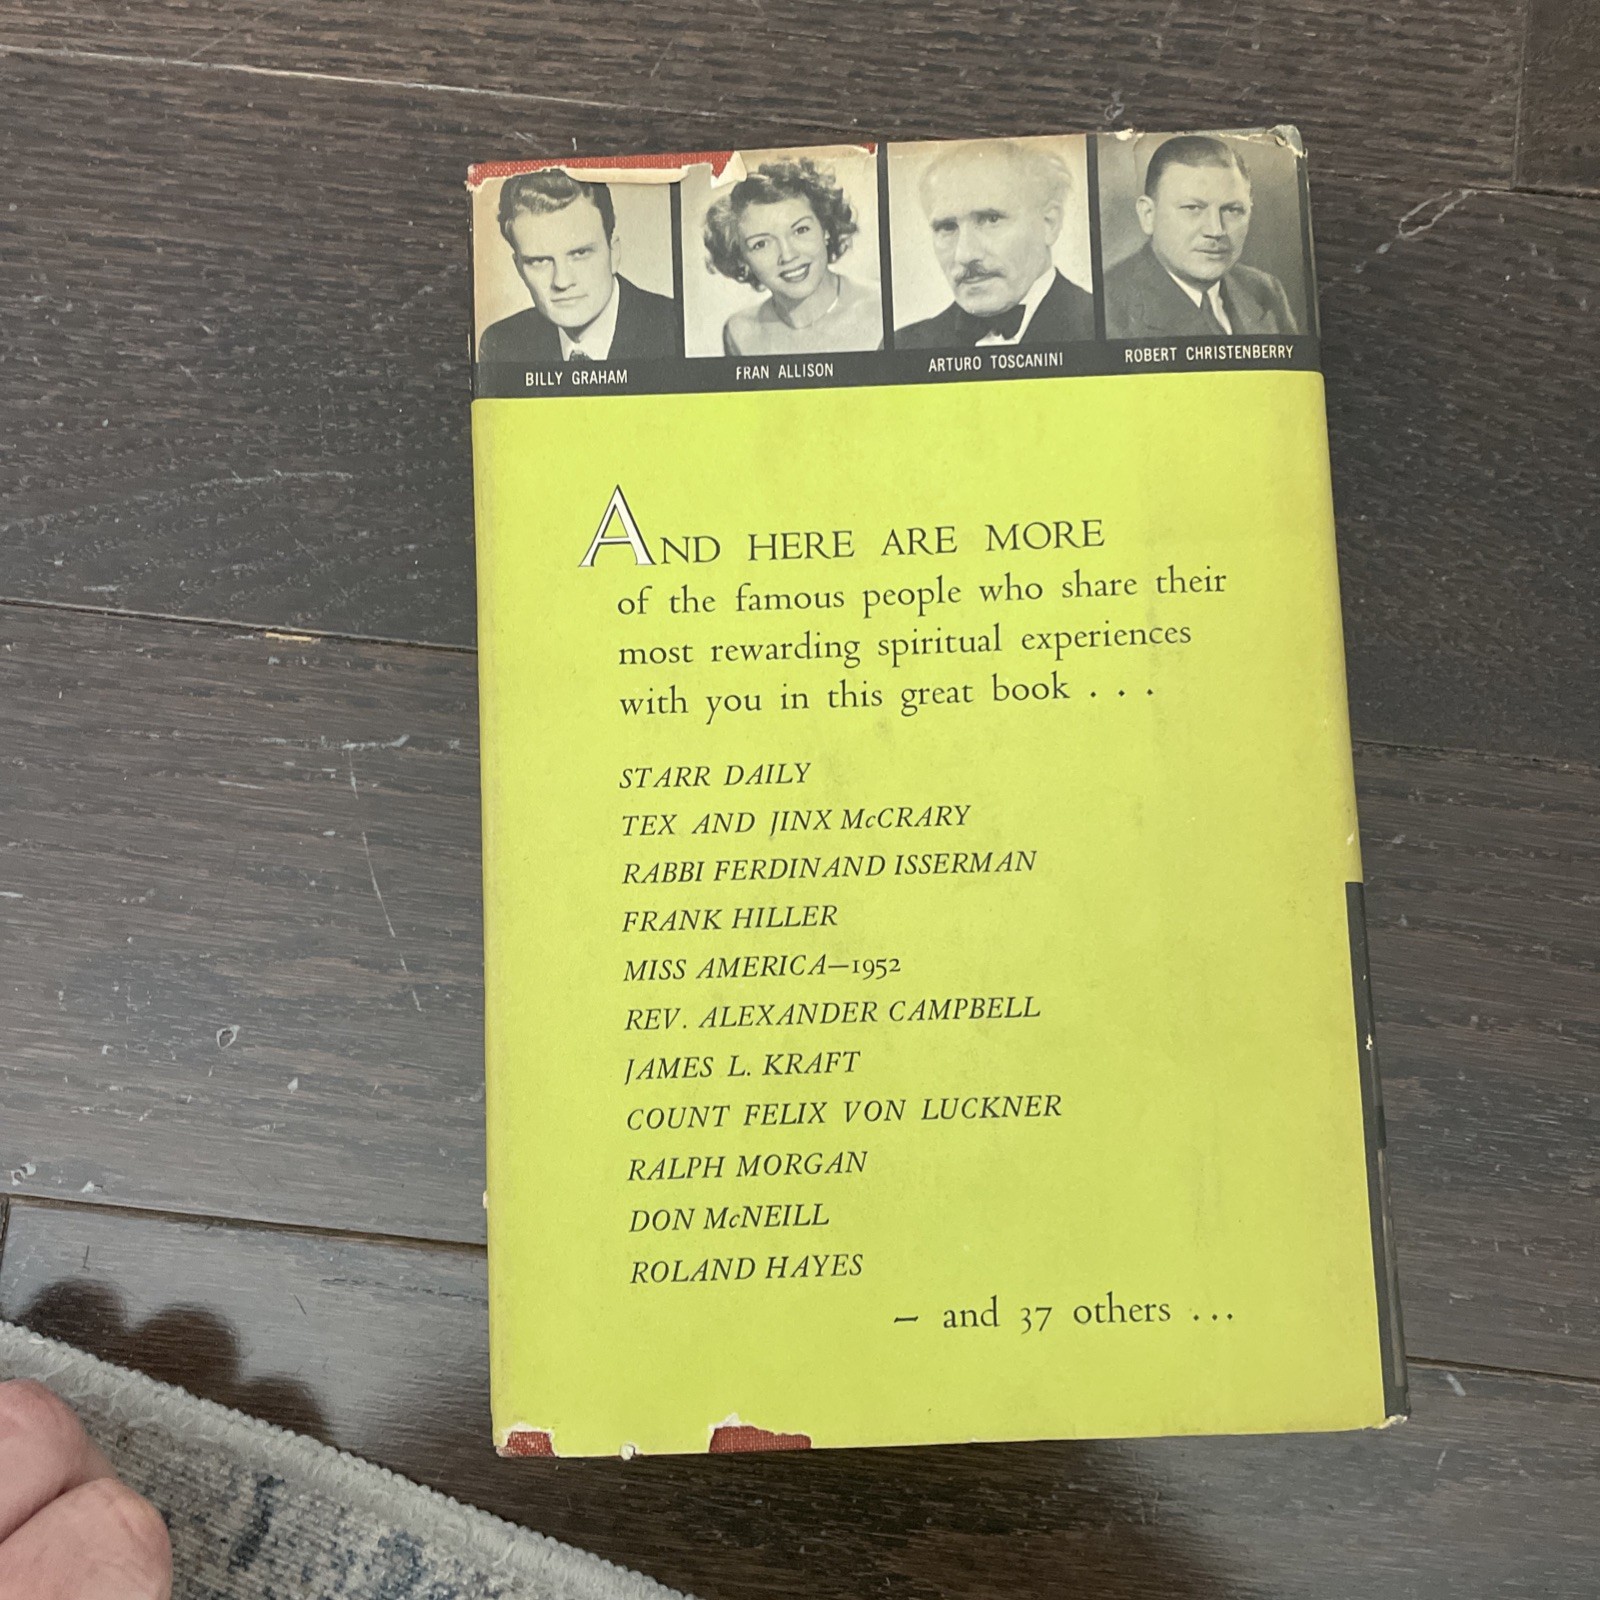 BILLY GRAHAM
FRAN ALLISON
ARTURO TOSCANINI
ROBERT CHRISTENBERRY
AND HERE ARE MORE
of the famous people who share their
most rewarding spiritual experiences
with you in this great book . . .
STARR DAILY
TEX AND JINX McCRARY
RABBI FERDINAND ISSERMAN
FRANK HILLER
MISS AMERICA—1952
REV. ALEXANDER CAMPBELL
JAMES L. KRAFT
COUNT FELIX VON LUCKNER
RALPH MORGAN
DON McNEILL
ROLAND HAYES
— and 37 others ...